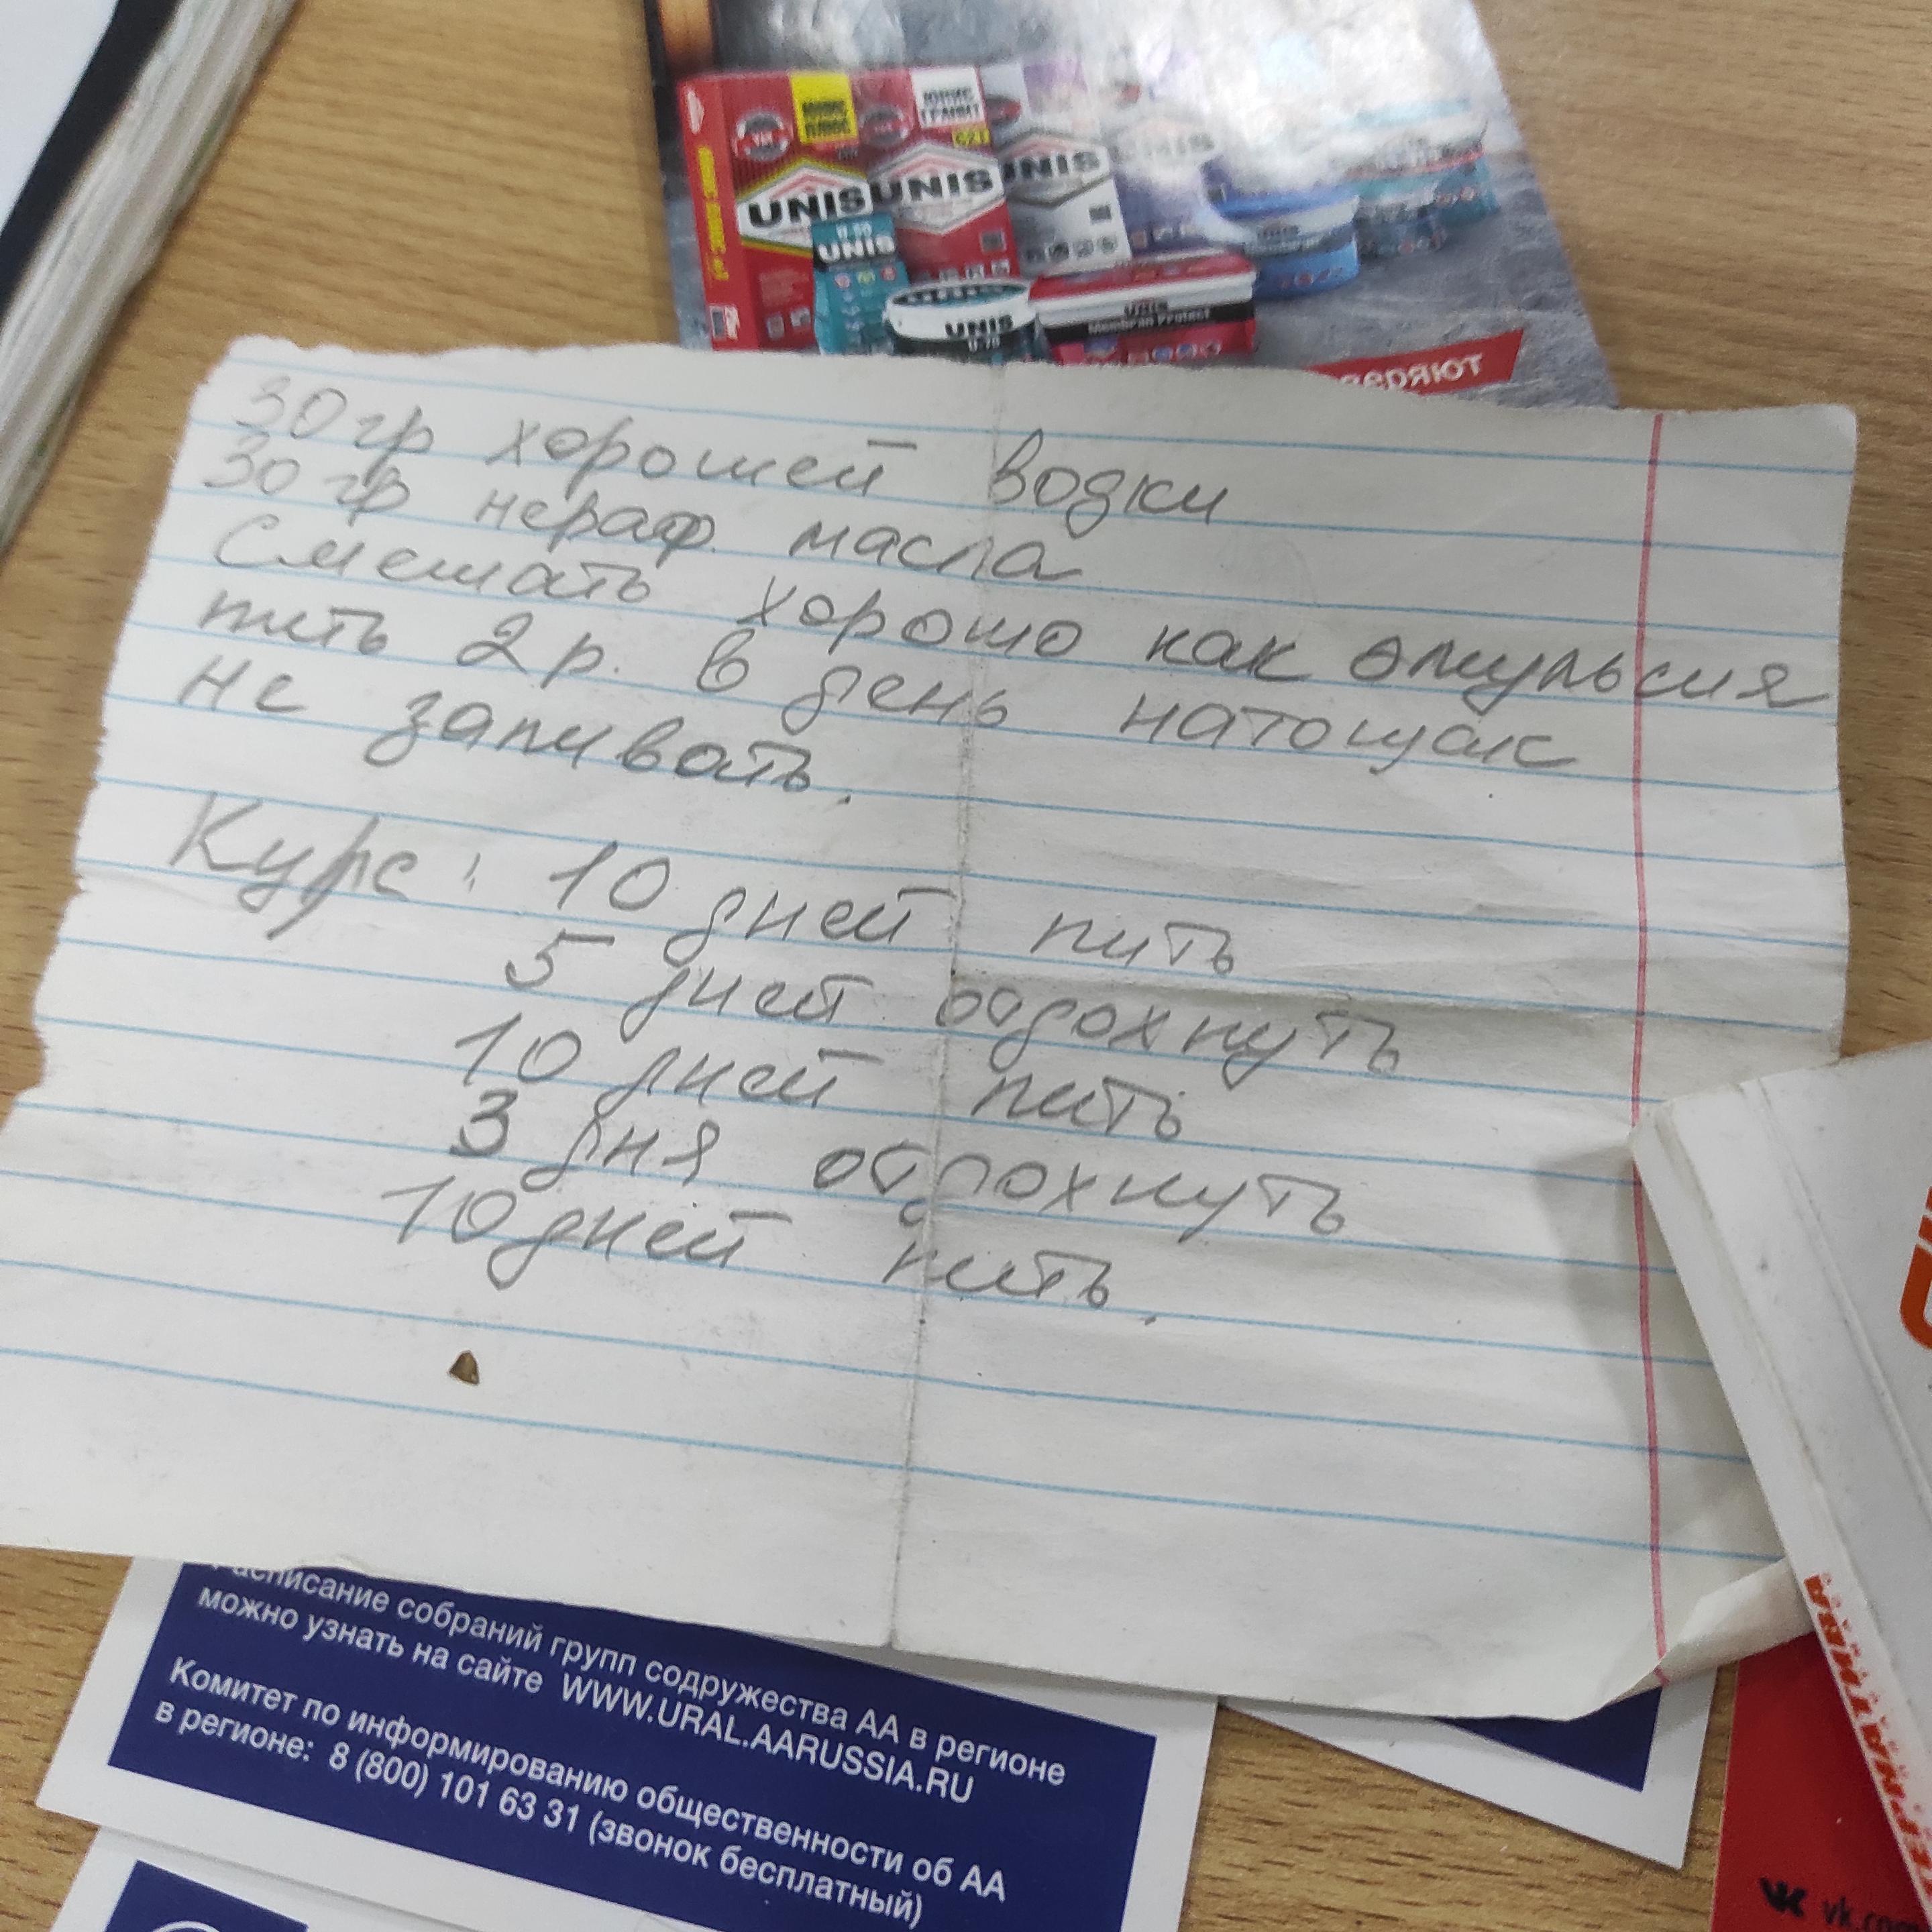 ЮНИС
ПЛЮС
ЮНИС
ГРАНИТ
UNIS
UNIS
UNIS
UNIS
UNIS
UNIS
UNIS
Membran Protect
30 гр хорошей водки
30 гр нераф. масла
Смешать хорошо как эмульсия
пить 2 р. в день натощак
не запивать.
Курс: 10 дней пить
5 дней отдохнуть
10 дней пить
3 дня отдохнуть
10 дней пить.
Расписание собраний групп содружества АА в регионе
можно узнать на сайте WWW.URAL.AARUSSIA.RU
Комитет по информированию общественности об АА
в регионе: 8 (800) 101 63 31 (звонок бесплатный)